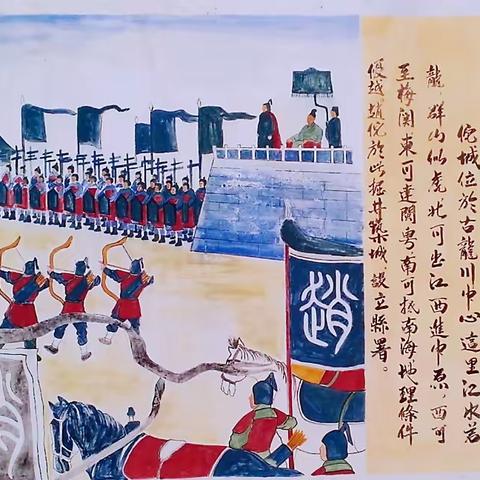 佗城位於古龍川中心這里江水若
龍，群山似虎，北可出江西進中原，西可
至梅関東可達閩粤南可抵南海地理條件
優越，趙佗於此掘井築城，設立縣署。
趙